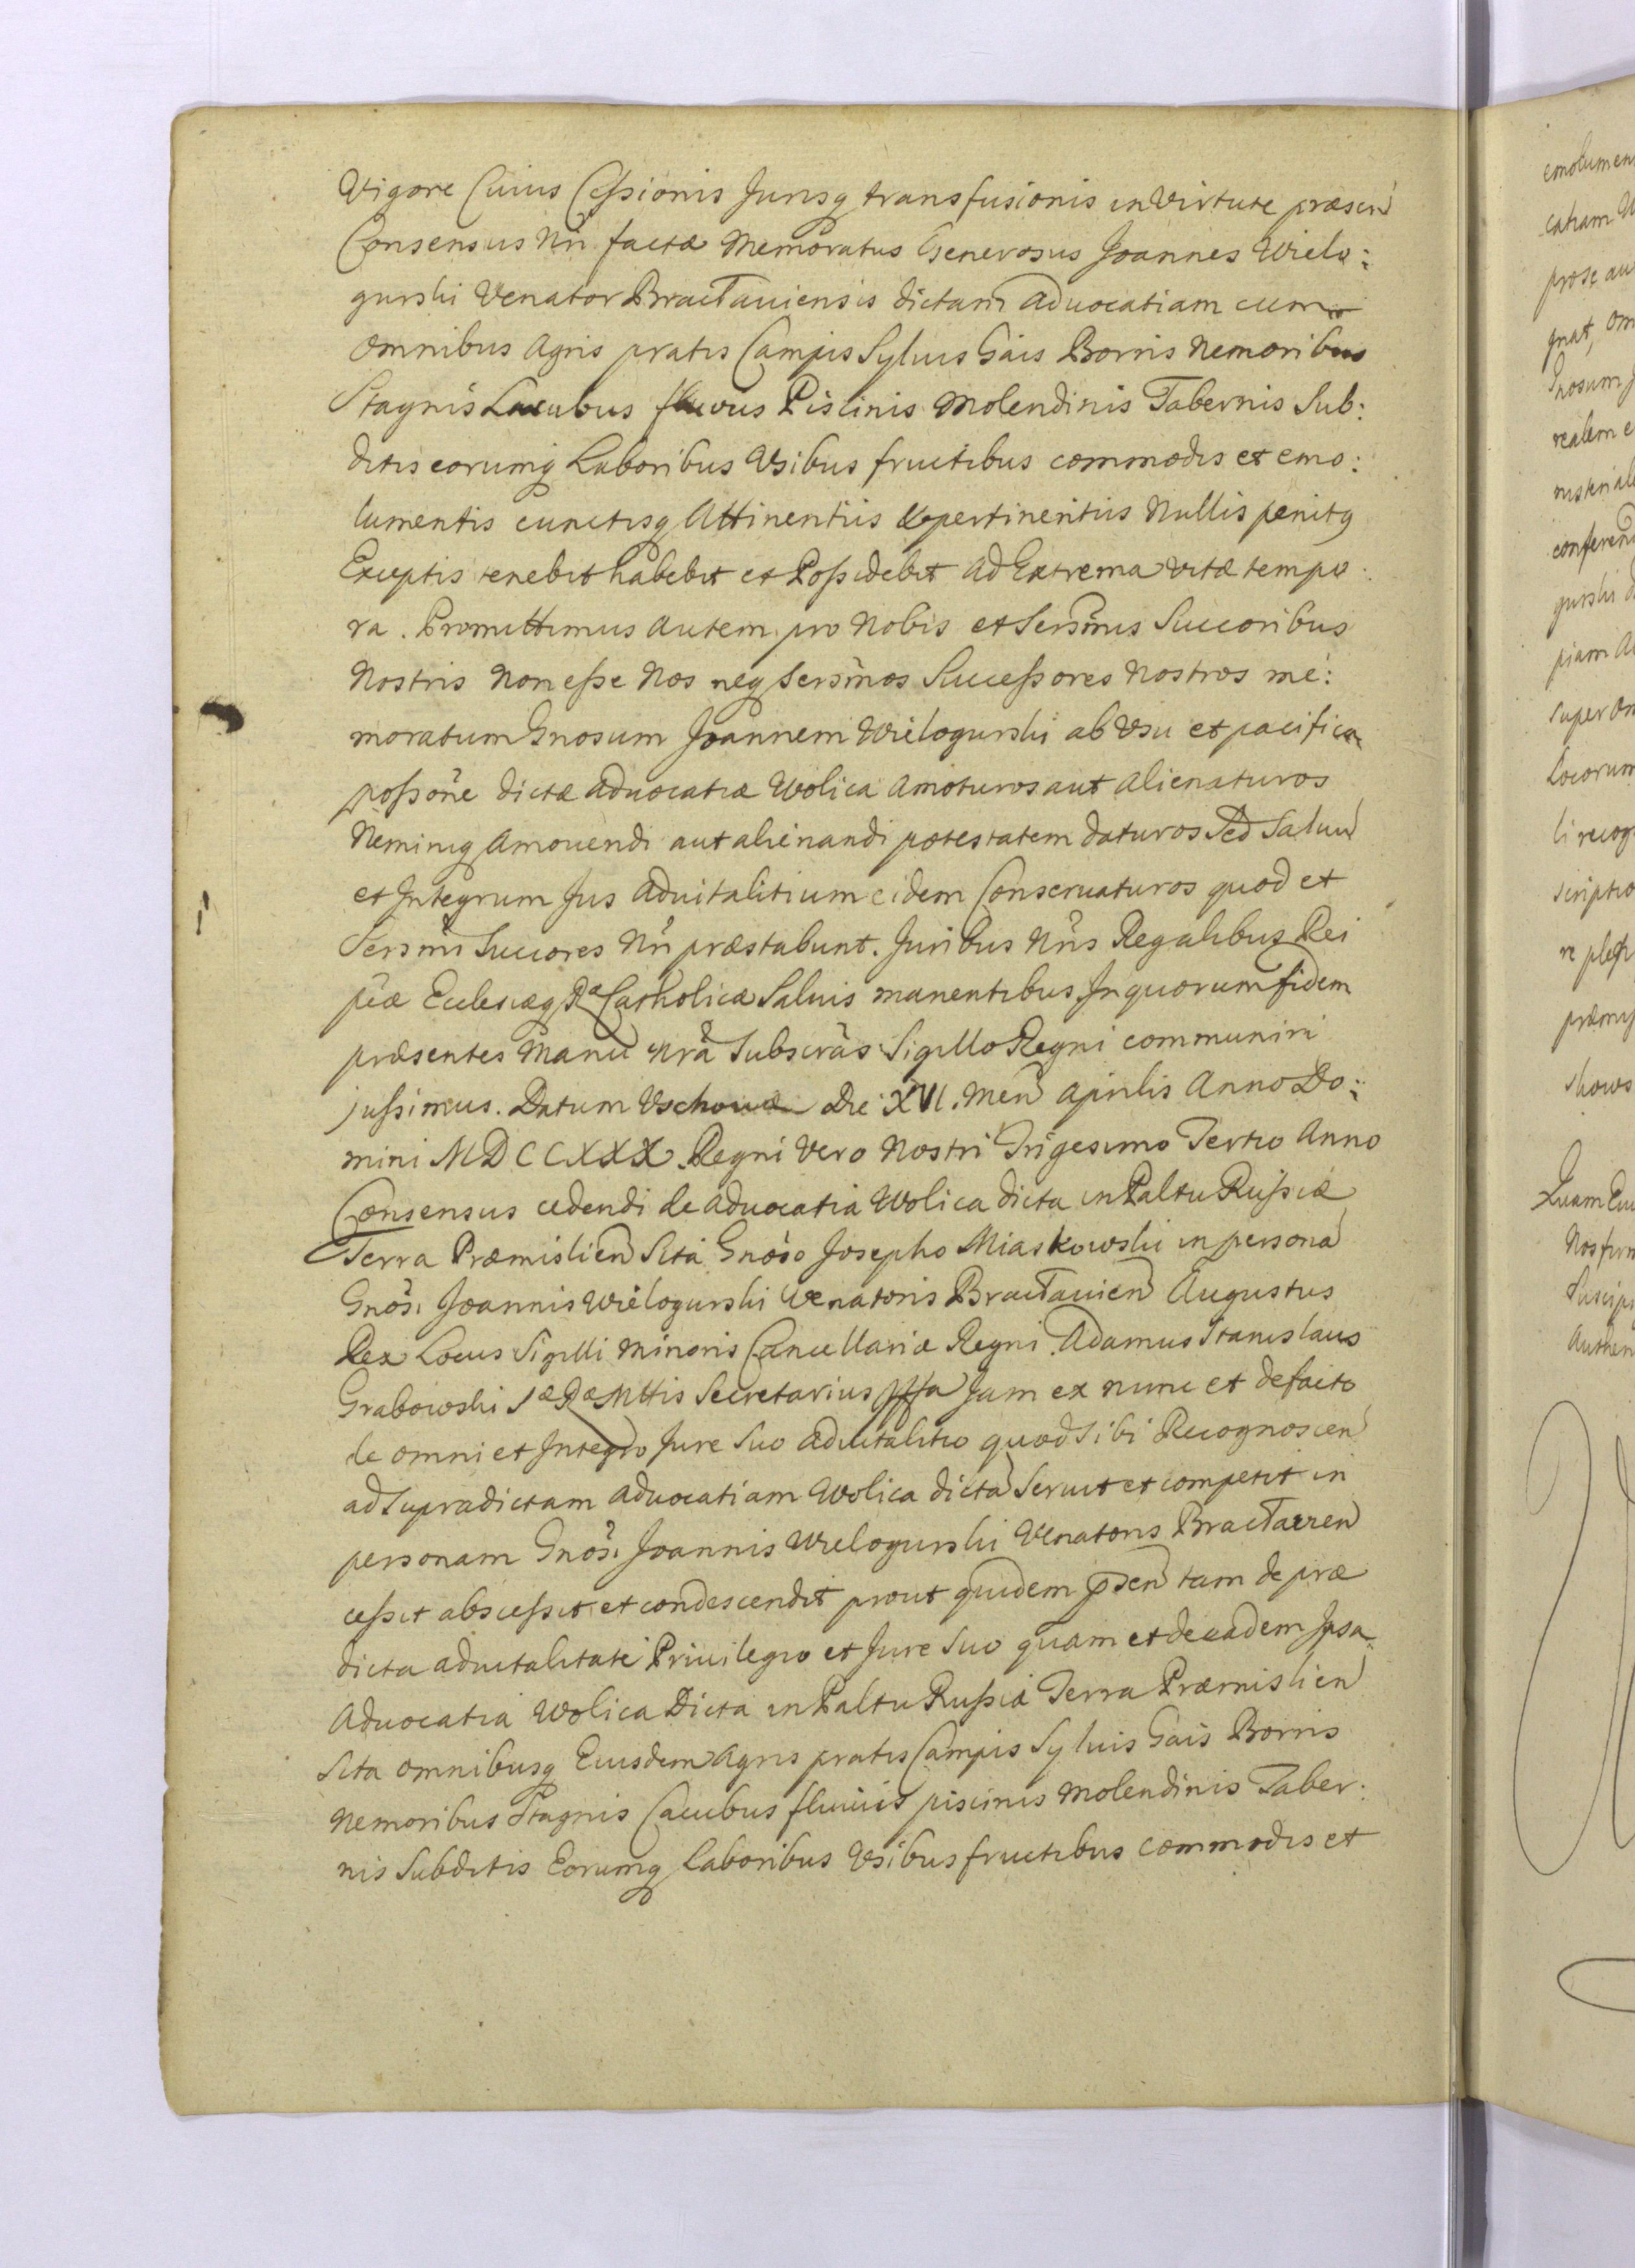 Vigore Cuius Cessionis Jurisq transfusionis in Virtute præsen
Consensus Nri factæ Memoratus Generosus Joannes Wielo:
gurski Venator Braclauiensis dictam Aduocatiam cum
Omnibus Agris pratis Campis Syluis Gais Borris Nemoribus
Stagnis Lacubus fluuis Piscinis Molendinis Tabernis Sub:
ditis eorumq Laboribus Vsibus fructibus commodis et emo:
lumentis cunctisq Attinentiis Repertinentiis Nullis penitq
Exceptis tenebit habebit et Possidebit Ad Extrema vitæ tempo:
ra. Promittimus Autem pro Nobis et Sersmis Succoribus
Nostris Non esse Nos neq Sersmos Successores Nostros me:
moratum Gnosum Joannem Wielogurski ab Vsu et pacifica
possone dictæ Aduocatiæ Wolica Amoturos aut Alienaturos
Neminiq Amouendi aut alienandi potestatem daturos Sed Saluu
et Integrum Jus Aduitalitium eidem Conseruaturos quod et
Sersmi Succores Nri præstabunt. Juribus Nris Regalibus Rei
pcæ Eclesiæq Ræ Catholicæ Saluis manentibus In quorum fidem
præsentes Manu nra Subscras Sigillo Regni communiri
jussimus. Datum Vschouæ Die XVI. Men Aprilis Anno Do:
mini MDCCXXX. Regni Vero Nostri Trigesimo Tertio Anno
Consensus cedendi de Aduocatia Wolica dicta in Paltu Russiæ
Terra Præmislien Sita Gnoso Josepho Miaskowski in persona
Gnosi Joannis Wielogurski Venatoris Braclauien Augustus
Rex Locus Sigilli Minoris Cancellariæ Regni Adamus Stanislaus
Grabowski Sæ Ræ Mttis Secretarius Jam ex nunc et defacto
de omni et Integro Jure Suo aduitalitio quod Sibi Recognoscen
ad Supradictam Aduocatiam Wolica dicta Seruit et competit in
personam Gnosi Joannis Wielogurski Venatoris Braclauien
cessit abscessit et condescendit prout quidem psen tam de præ
dicta aduitalitate Priuilegio et Jure Suo quam et de eadem Ipsa
Aduocatia Wolica Dicta in Paltu Russiæ Terra Præmislien
Sita Omnibusq Eiusdem Agris pratis Campis Syluis Gais Borris
Nemoribus Stagnis Lacubus fluuiis piscinis Molendinis Taber:
nis Subditis Eorumq Laboribus Vsibus fructibus Commodis et